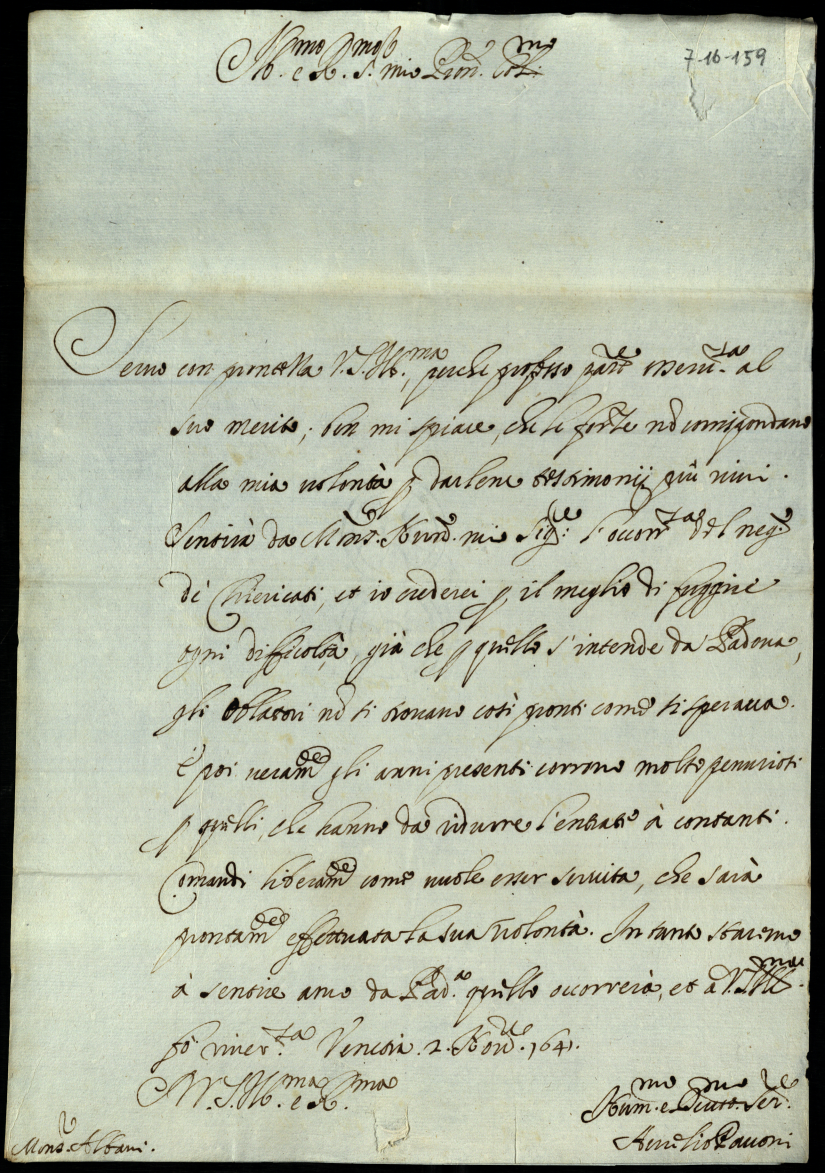 Ill.mo e R.mo S.r mio Pron. Col.mo
7-16-159
Seruo con prontezza V.S. Ill.ma, perche professo part.re osseru.ta al
suo merito; ben mi spiace, che le forze nō corrispondano
alla mia uolontà p darlene testimonij più uiui.
Sentirà da Mons.r mio Sig.re l'occorr.za del neg.o
de Chiericati, et io crederei p il meglio di fuggire
ogni difficoltà, già che p quello s'intende da Padoua,
gli Oblatori nō si trouano così pronti come si speraua.
E poi ueram.te gli anni presenti corrono molto penuriosi
p quelli, che hanno da ridurre l'entrate à contanti.
Comandi liberam.te come uuole esser seruita, che sarà
prontam.te effettuata la sua uolontà. In tanto staremo
à sentire anco da Pad.a quello occorrerà, et à V.S. Ill.ma
fò riuer.za Venetia. 2. Nou.re 1641.
Di V.S. Ill.ma e R.ma
Hum.mo e Deuot.mo Ser.re
Aurelio Pauoni
Mons.r Albani.